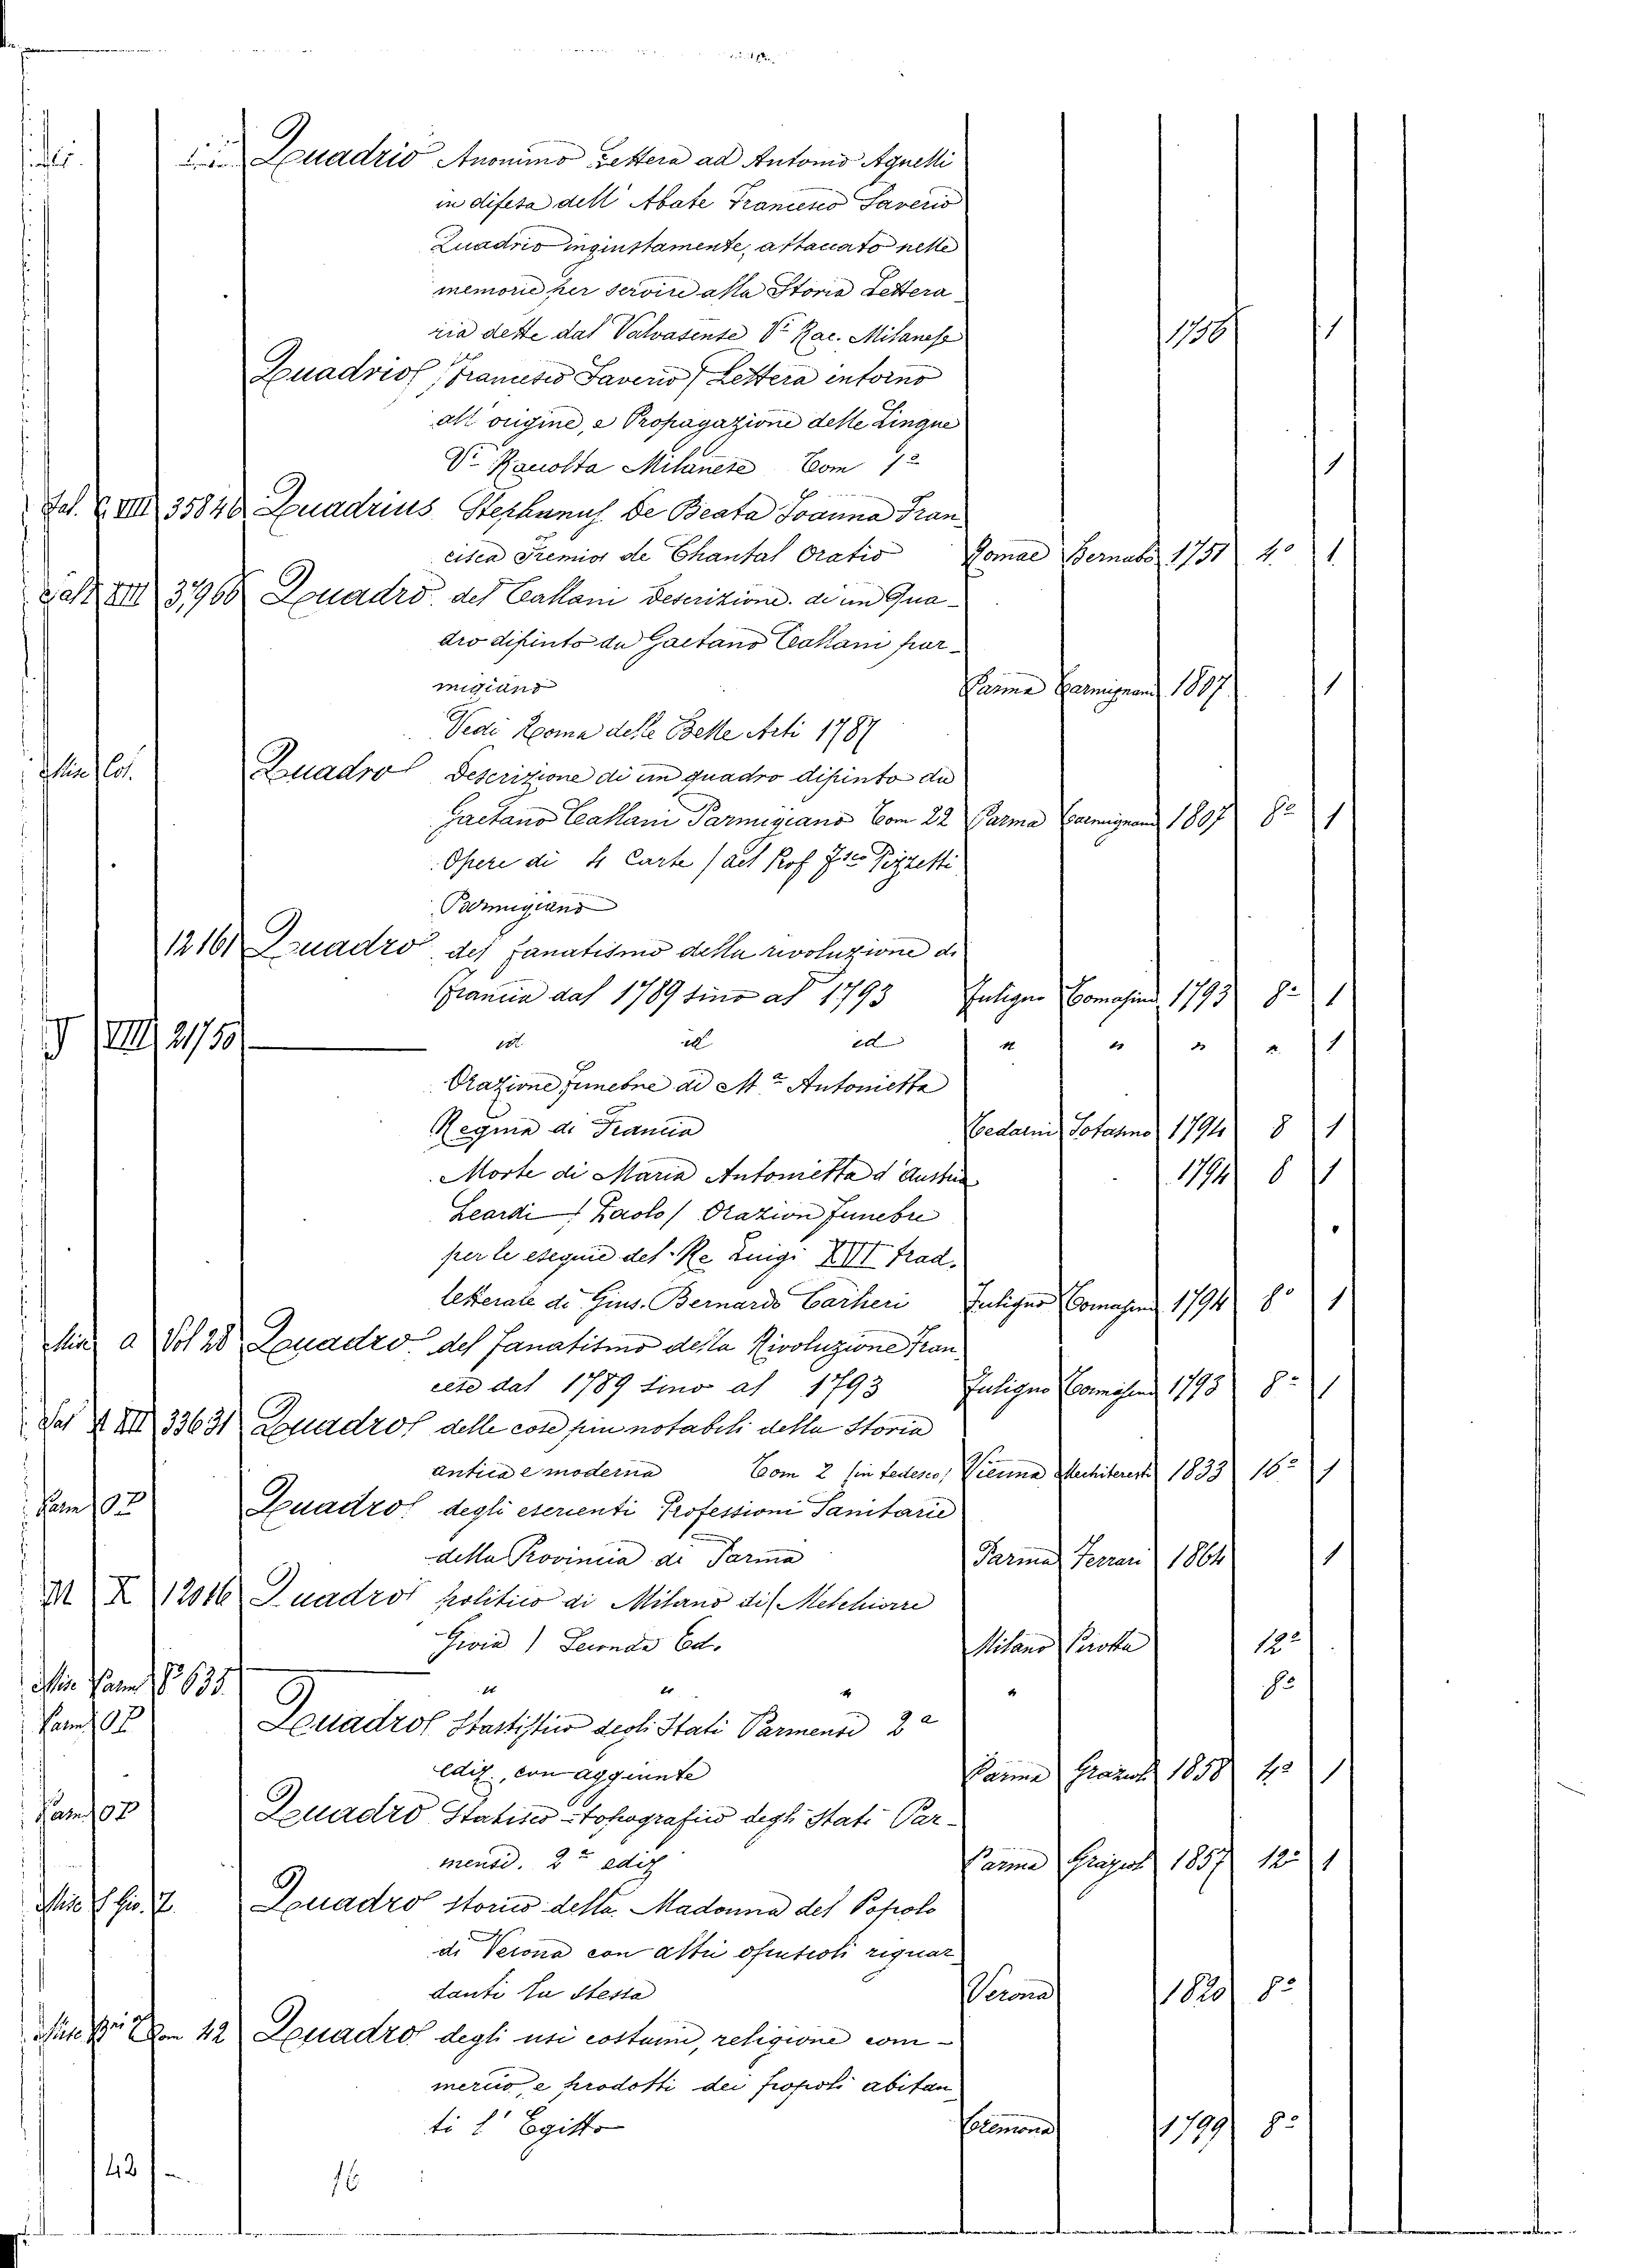 Quadrio Anonimo Lettera ad Antonio Agnelli
in difesa dell' Abate Francesco Saverio
Quadrio ingiustamente, attaccato nelle
memorie per servire alla Storia Lettera
ria dette dal Valvasense V. Rac. Milanese 1756 1
Quadrio (Francesco Saverio) Lettera intorno
all origine, e Propagazione delle Lingue
V. Raccolta Milanese Tom 1º 1
Sal. C. VIII 35846 Quadrius Stephanus De Beata Joanna Fran
cisca Fremiot de Chantal Oratio Romae Bernabò 1751 4º 1
VIII 37966 Quadro del Callani Descrizione di un Qua-
dro dipinto da Gaetano Callani par-
migiano Parma Carmignani 1807 1
Vedi Roma delle Belle Arti 1787
Misc. Quadro Descrizione di un quadro dipinto da
Gaetano Callani Parmigiano Tom 22 Parma Carmignani 1807 8º 1
Opere di 4 Carte (del Prof Fsco Pizzetti
Parmigiano
12161 Quadro del fanatismo della rivoluzione di
Francia dal 1789 sino al 1793 Fuligno Tomasini 1793 8º 1
VIII 21750 id id id " " " " 1
Orazione funebre di M.ª Antonietta
Regina di Francia 1794 8 1
Morte di Maria Antonietta d'Austria 1794 8 1
Leardi (Paolo) Orazion funebre
per le esequie del Re Luigi XVI trad.
letterale di Gius. Bernardo Fuligno Tomasini 1794 8º 1
Misc a Vol 28 Quadro del fanatismo della Rivoluzione Fran
cese dal 1789 sino al 1793 Fuligno Tomasini 1793 8º 1
Sal XIII 33631 Quadro delle cose piu notabili della Storia
antica e moderna Tom 2 (in tedesco) Vienna Mechiterest 1833 16º 1
Parm Quadro degli esercenti Professioni Sanitarie
della Provincia di Parma Parma Ferrari 1864 1
M X 12016 Quadro politico di Milano di (Melchiorre
Gioia) Seconda Ed. Milano Pirotta 12º
Misc Parm 8º 635 " " " " 8º
Parm Quadro Stastistico degli Stati Parmensi 2ª
ediz., con aggiunte Parma Grazioli 1858 4º 1
Parm Quadro Statisco-topografico degli Stati Par-
mensi. 2ª ediz Parma Grazioli 1857 12º 1
Misc Quadro storico della Madonna del Popolo
di Verona con altri opuscoli riguar
danti la stessa Verona 1820 8º
Tom 42 Quadro degli usi costumi, religione com-
mercio, e prodotti dei popoli abitan
ti l' Egitto Cremona 1799 8º
42
16